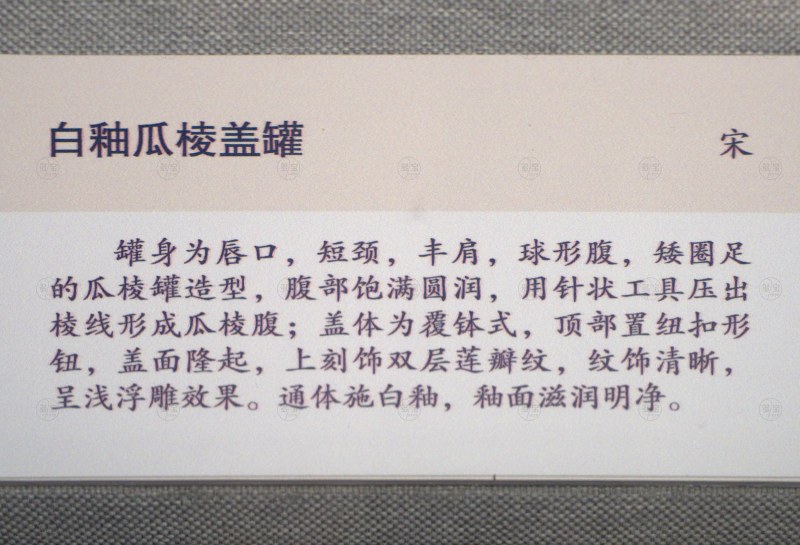 白釉瓜棱盖罐 宋
罐身为唇口，短颈，丰肩，球形腹，矮圈足
的瓜棱罐造型，腹部饱满圆润，用针状工具压出
棱线形成瓜棱腹；盖体为覆钵式，顶部置纽扣形
钮，盖面隆起，上刻饰双层莲瓣纹，纹饰清晰，
呈浅浮雕效果。通体施白釉，釉面滋润明净。